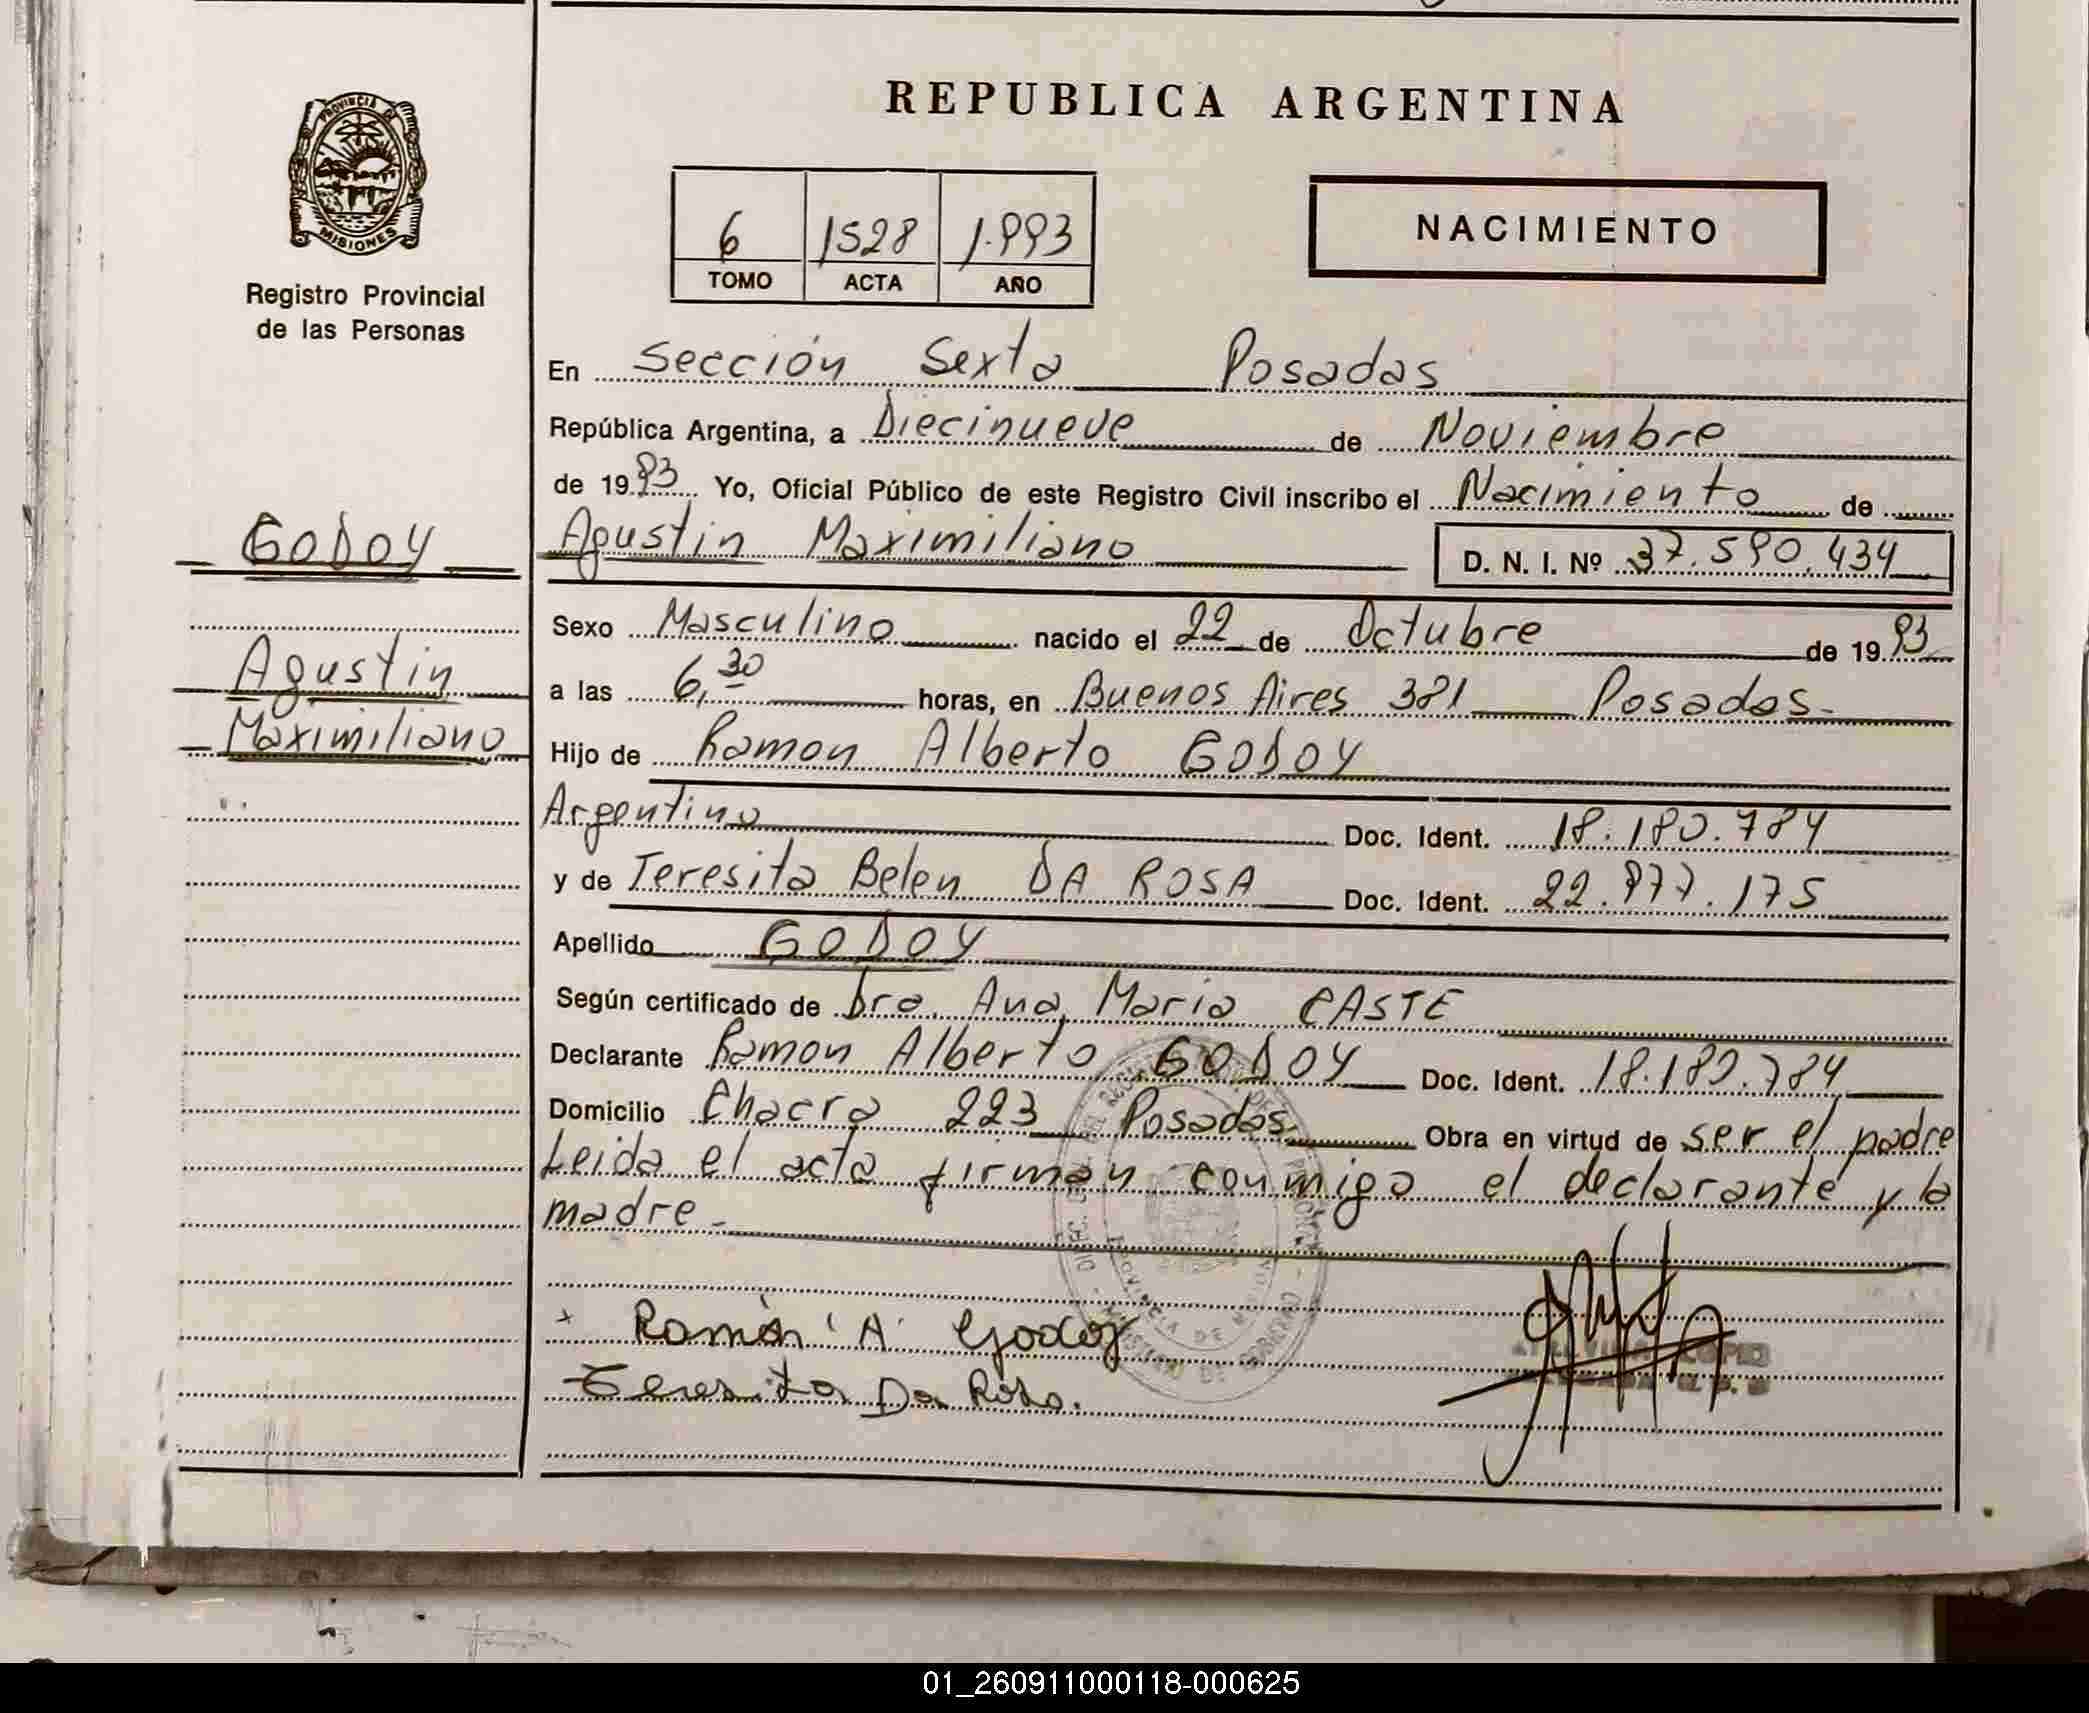 REPUBLICA ARGENTINA
PROVINCIA DE
MISIONES
Registro Provincial
de las Personas
6 1528 1.993
TOMO ACTA AÑO
NACIMIENTO
En Sección Sexta Posadas
República Argentina, a Diecinueve de Noviembre
de 1993 Yo, Oficial Público de este Registro Civil inscribo el Nacimiento de
GODOY
Agustin Maximiliano D. N. I. Nº 37.590.434
Sexo Masculino nacido el 22 de Octubre de 1993
Agustin
Maximiliano
a las 6,30 horas, en Buenos Aires 381 Posadas-
Hijo de Ramon Alberto GODOY
Argentino Doc. Ident. 18.180.784
y de Teresita Belen DA ROSA Doc. Ident. 22.977.175
Apellido GODOY
Según certificado de Dra. Ana Maria CASTE
Declarante Ramon Alberto GODOY Doc. Ident. 18.180.784
Domicilio Chacra 223 Posadas Obra en virtud de ser el padre
Leida el acta firman conmigo el declarante y la
madre-
Ramón A. Godoy
Teresita Da Rosa.
PROVINCIA DE
MINISTERIO DE GOBIERNO
01_260911000118-000625